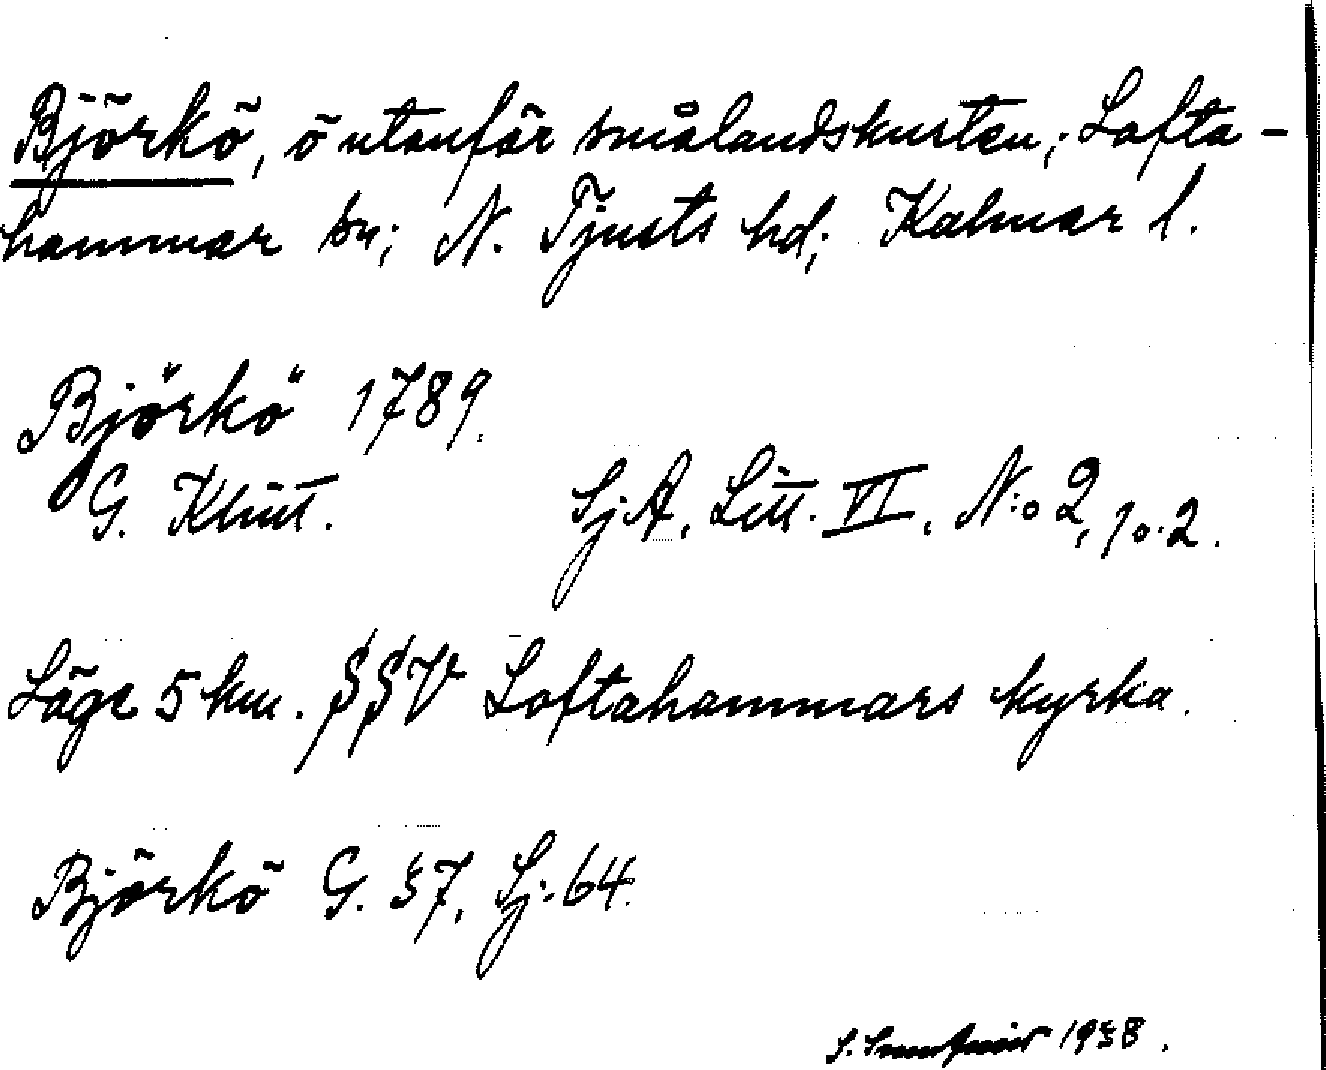 Björkö, ö utanför smålandskusten; Lofta-
hammar sn; N. Tjusts hd; Kalmar l.
Björkö 1789.
G. Klint. SjA, Litt. VI, N:o 2, p. 2.
Läge 5 km. SSV Loftahammars kyrka.
Björkö G. 37, Sj. 64.
S. 1938.